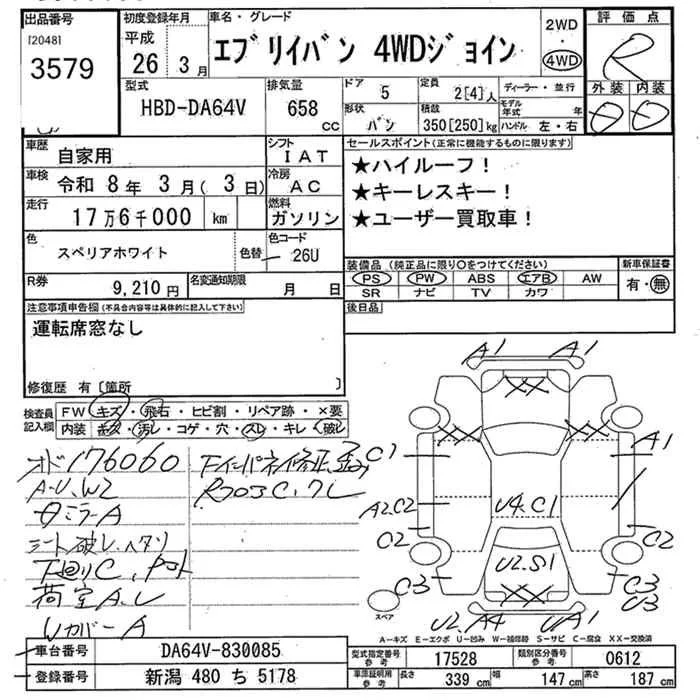 出品番号
[2048]
3579
初度登録年月
平成
26 3月
車名・グレード
エブリイバン 4WDジョイン
2WD
・
4WD
評価点
R
外装 内装
型式
HBD-DA64V
排気量
658
cc
ドア
5
定員
2[4]人
ディーラー・並行
形状
バン
積載
350[250]kg
モデル年式 年
ハンドル 左・右
車歴
自家用
シフト
IAT
車検
令和 8年 3月( 3日)
冷房
AC
走行
17万6千000 km
燃料
ガソリン
色
スペリアホワイト
色替
色コード
26U
R券
9,210円
名変通知期限
月 日
セールスポイント(正常に機能するものに限ります)
★ハイルーフ!
★キーレスキー!
★ユーザー買取車!
装備品 (純正品に限り○をつけてください)
PS PW ABS エアB AW
SR ナビ TV カワ
新車保証書
有・無
後日品
注意事項申告欄(不具合内容等は具体的に記入して下さい)
運転席窓なし
修復歴 有〔箇所 〕
検査員
記入欄
FW キズ・飛石・ヒビ割・リペア跡・×要
内装 キズ・汚レ・コゲ・穴・スレ・キレ・破レ
オド176060
A-U、W2
シート破レ、ヘタリ
下廻りC、
荷室A、U
WカバーA
A1 A1
C1 A1
A2.C2
U4.C1
C2 C2
U2.S1
C3 C3
U3
U2.A4 UA1
スペア
A-キズ E-エクボ U-凹み W-補修跡 S-サビ C-腐食 XX-交換済
車台番号
DA64V-830085
登録番号
新潟 480 ち 5178
型式指定番号
参考
17528
類別区分番号
参考
0612
車庫証明用
参考
長さ 339 cm
幅 147 cm
高さ 187 cm